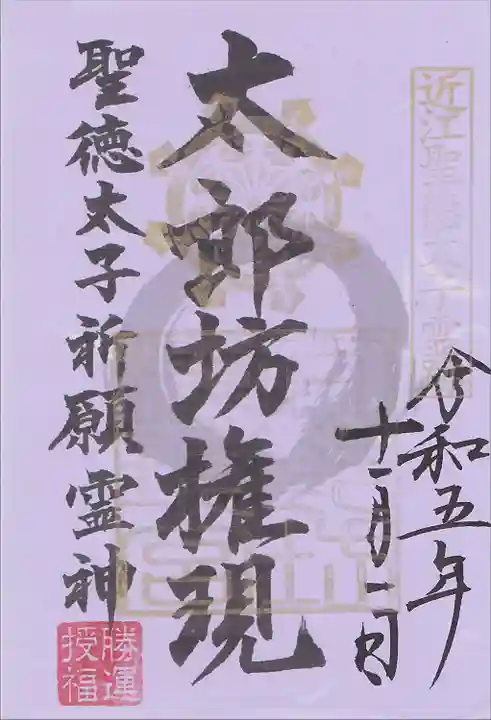 近江聖徳太子霊跡
令和五年
十一月一日
太郎坊権現
聖徳太子祈願霊神
勝運
授福